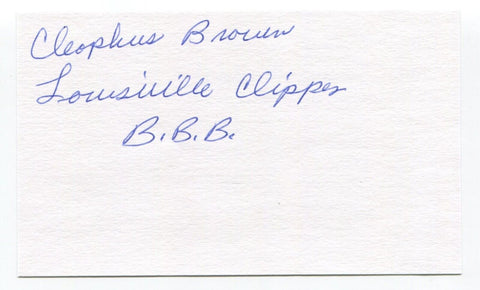 Cleophus Brown
Louisville Clipper
B.B.B.